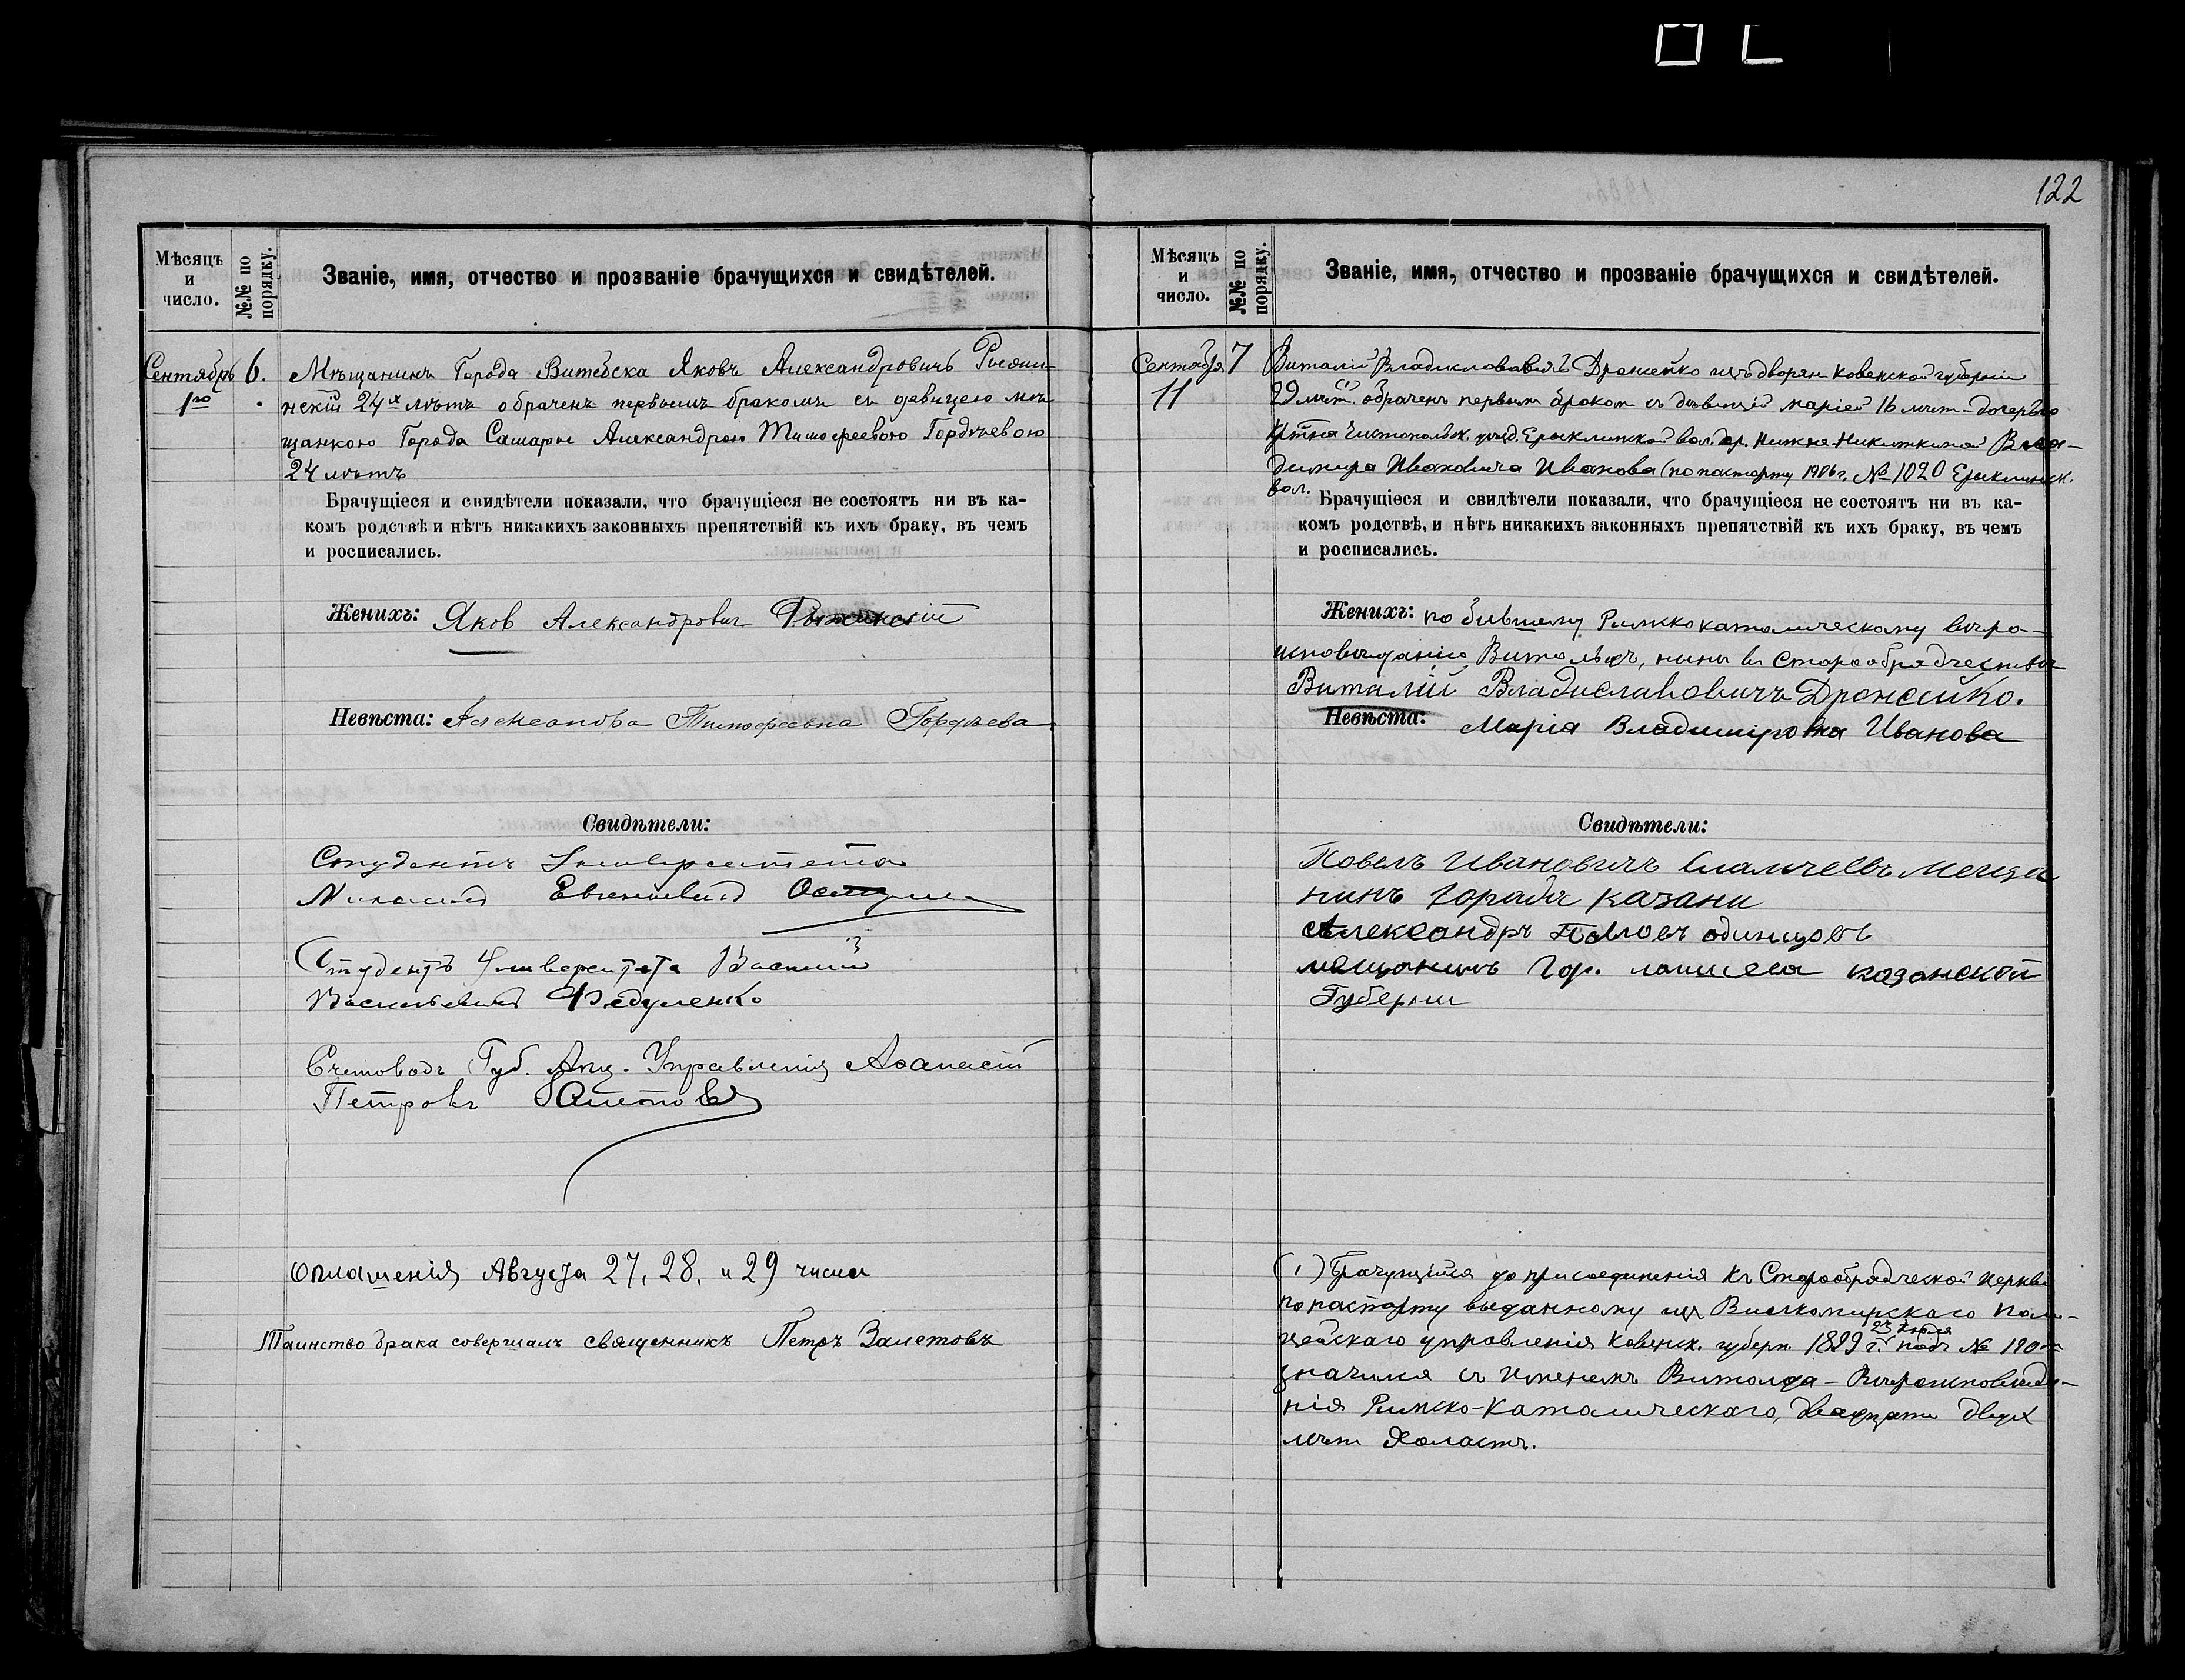 122
Мѣсяцъ и число.
№№ по порядку.
Званіе, имя, отчество и прозваніе брачущихся и свидѣтелей.
Сентябрь 6. Мѣщанинъ Города Витебска Яковъ Александровичъ
1го нскій 24х лѣтъ обраченъ первымъ бракомъ съ девицею мѣ-
щанкою Города Самары Александрою Тимофеевою Гордѣевою
24 лѣтъ
Брачущіеся и свидѣтели показали, что брачущіеся не состоятъ ни въ ка-
комъ родствѣ и нѣтъ никакихъ законныхъ препятствій къ ихъ браку, въ чемъ
и росписались.
Женихъ: Яков Александрович
Невѣста: Александра Тимофеевна Гордѣева
Свидѣтели:
Студентъ Университета
Евгеньевич
Студентъ Университета Василій
Васильевич Федуленко
Счетоводъ Губ. Акц. Управленія Афанасій
Петровъ
Оглашенія Августа 27, 28, и 29 числа
Таинство брака совершалъ священникъ Петръ Залетовъ
Мѣсяцъ и число.
№№ по порядку.
Званіе, имя, отчество и прозваніе брачущихся и свидѣтелей.
Сентября 7 Виталій Владиславовичъ Дронсейко изъ дворян Ковенской губерніи
11 29 лѣт. (1) обраченъ первым браком съ дѣвицей Маріей 16 лѣт - дочерью
Чистопольск. уезд. Ерыклинской вол. дер. Нижне-Никиткиной Вла-
димира Ивановича Иванова (по паспорту 1906 г. № 1020 Ерыклинск.
вол.
Брачущіеся и свидѣтели показали, что брачущіеся не состоятъ ни въ ка-
комъ родствѣ, и нѣтъ никакихъ законныхъ препятствій къ ихъ браку, въ чемъ
и росписались.
Женихъ: по бывшему Римскокатолическому вѣро-
исповѣданію Витольдъ, ныне в Старообрядчествѣ
Виталій Владиславовичъ Дронсейко.
Невѣста: Марія Владиміровна Иванова
Свидѣтели:
Павелъ Ивановичъ меща
нинъ города казани
Александръ Павловъ одинцовъ
мещанинъ гор. лаишева казанской
Губерни
(1) Брачущійся до присоединенія къ Старообрядческой Церкви
по паспорту выданному изъ Вилкомирскаго Поли-
цейскаго управленія Ковенск. губерн. 1899 г. 23 Июля подъ № 190
значился съ именемъ Витолда - Вѣроисповѣда-
нія Римско-Католическаго, двадцати двухъ
лѣтъ Холостъ.